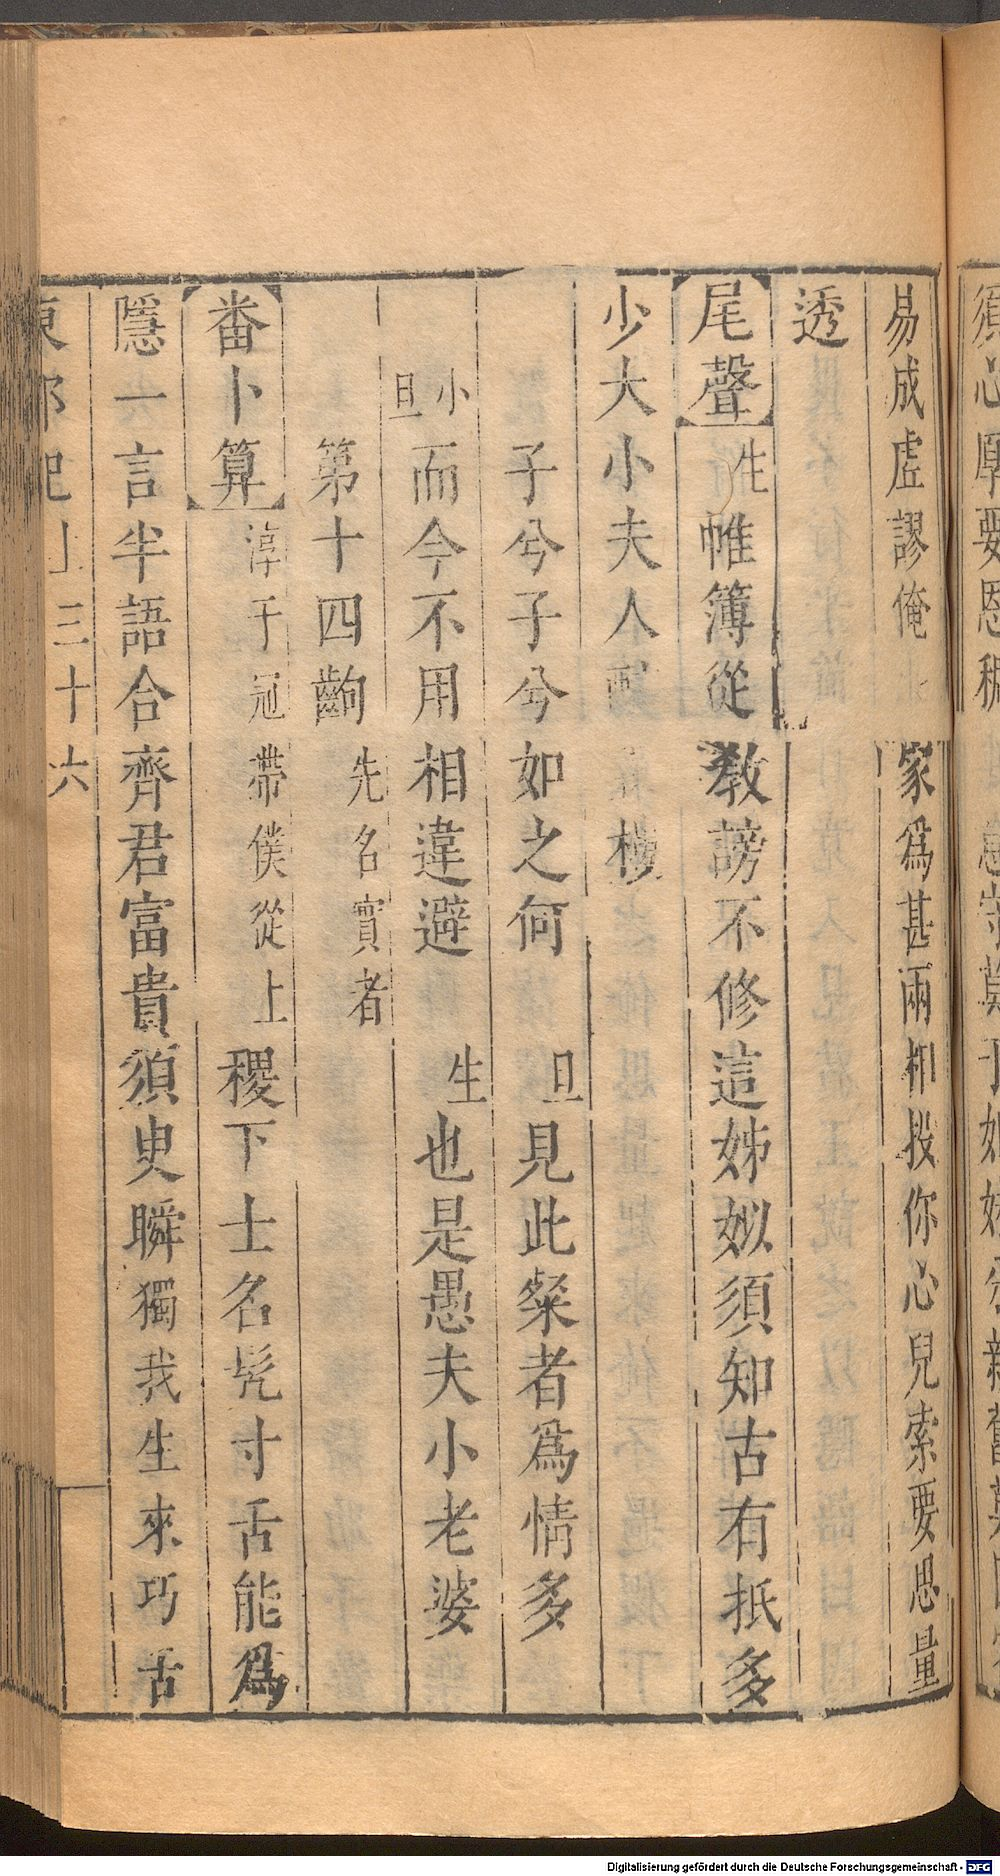 易成虛謬俺 家爲甚兩相投你心兒索要思量
透
尾聲 生 帷簿從教謗不修這姊姒須知古有祇多
少大小夫人
子兮子兮如之何 旦 見此粲者爲情多
小旦 而今不用相違避 生 也是愚夫小老婆
第十四齣 先名實者
番卜算 淳于冠帶僕從上 稷下士名髡寸舌能爲
隱一言半語合齊君富貴須臾瞬獨我生來巧舌
東郭記 上 三十六
Digitalisierung gefördert durch die Deutsche Forschungsgemeinschaft - DFG